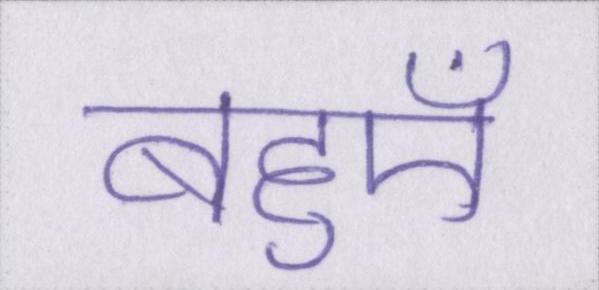 बहुएँ